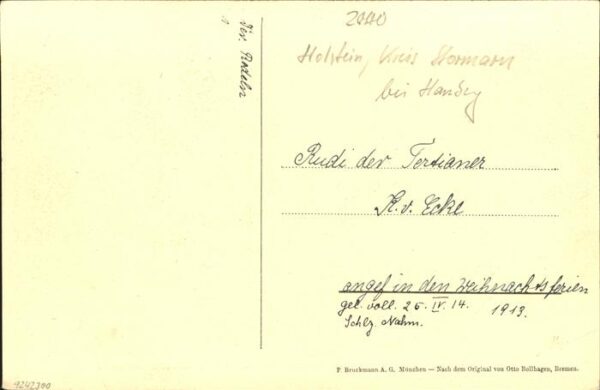 2000
Holstein, Kreis Stormarn
bei Hamburg
Rudi der Tertianer
K. v. Ecke
angef in den Weihnachtsferien
1913.
gel. voll. 26. IV. 14.
Schlz. Nahm.
P. Bruckmann A. G. München — Nach dem Original von Otto Bollhagen, Bremen.
9242300